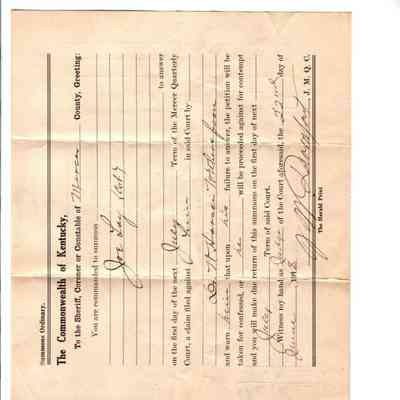 Summons Ordinary.
The Commonwealth of Kentucky,
To the Sheriff, Coroner or Constable of Mercer County, Greeting:
You are commanded to summon
Joe Lay
to answer
on the first day of the next July Term of the Mercer Quarterly
Court, a claim filed against him in said Court by
D. W.
and warn him that upon his failure to answer, the petition will be
taken for confessed, or he will be proceeded against for contempt
and you will make due return of this summons on the first day of next
July Term of said Court.
Witness my hand as Judge of the Court aforesaid, the 22nd day of
June 191
J. M. Q. C.
The Herald Print